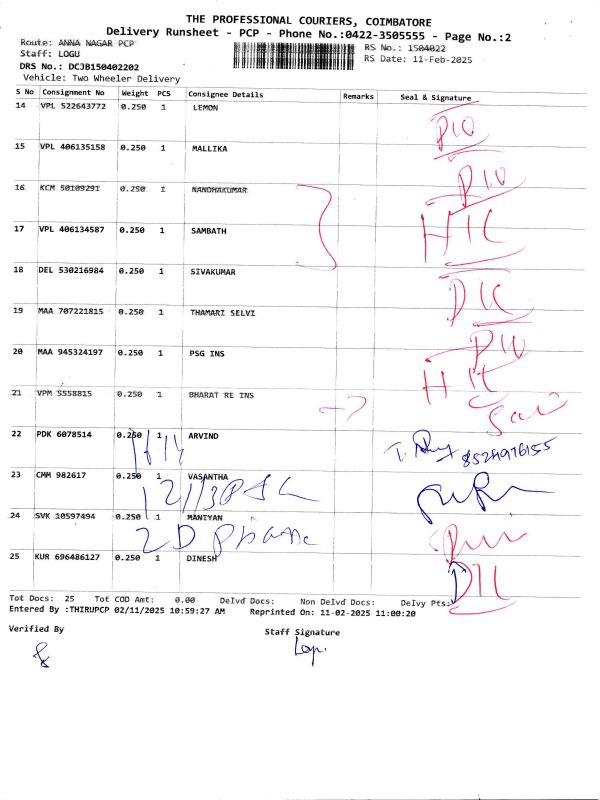 THE PROFESSIONAL COURIERS, COIMBATORE
Delivery Runsheet - PCP - Phone No.:0422-3505555 - Page No.:2
Route: ANNA NAGAR PCP
RS No.: 1504022
Staff: LOGU
RS Date: 11-Feb-2025
DRS No.: DCJB150402202
Vehicle: Two Wheeler Delivery
S No Consignment No Weight PCS Consignee Details Remarks Seal & Signature
14 VPL 522643772 0.250 1 LEMON
15 VPL 406135158 0.250 1 MALLIKA
16 KCM 50109291 0.250 1 NANDHAKUMAR
17 VPL 406134587 0.250 1 SAMBATH
18 DEL 530216984 0.250 1 SIVAKUMAR
19 MAA 707221815 0.250 1 THAMARI SELVI
20 MAA 945324197 0.250 1 PSG INS
21 VPM 5558815 0.250 1 BHARAT RE INS
22 PDK 6078514 0.250 1 ARVIND
23 CMM 982617 0.250 1 VASANTHA
24 SVK 10597494 0.250 1 MANIYAN
25 KUR 696486127 0.250 1 DINESH
Tot Docs: 25 Tot COD Amt: 0.00 Delvd Docs: Non Delvd Docs: Delvy Pts:
Entered By :THIRUPCP 02/11/2025 10:59:27 AM Reprinted On: 11-02-2025 11:00:20
Verified By Staff Signature